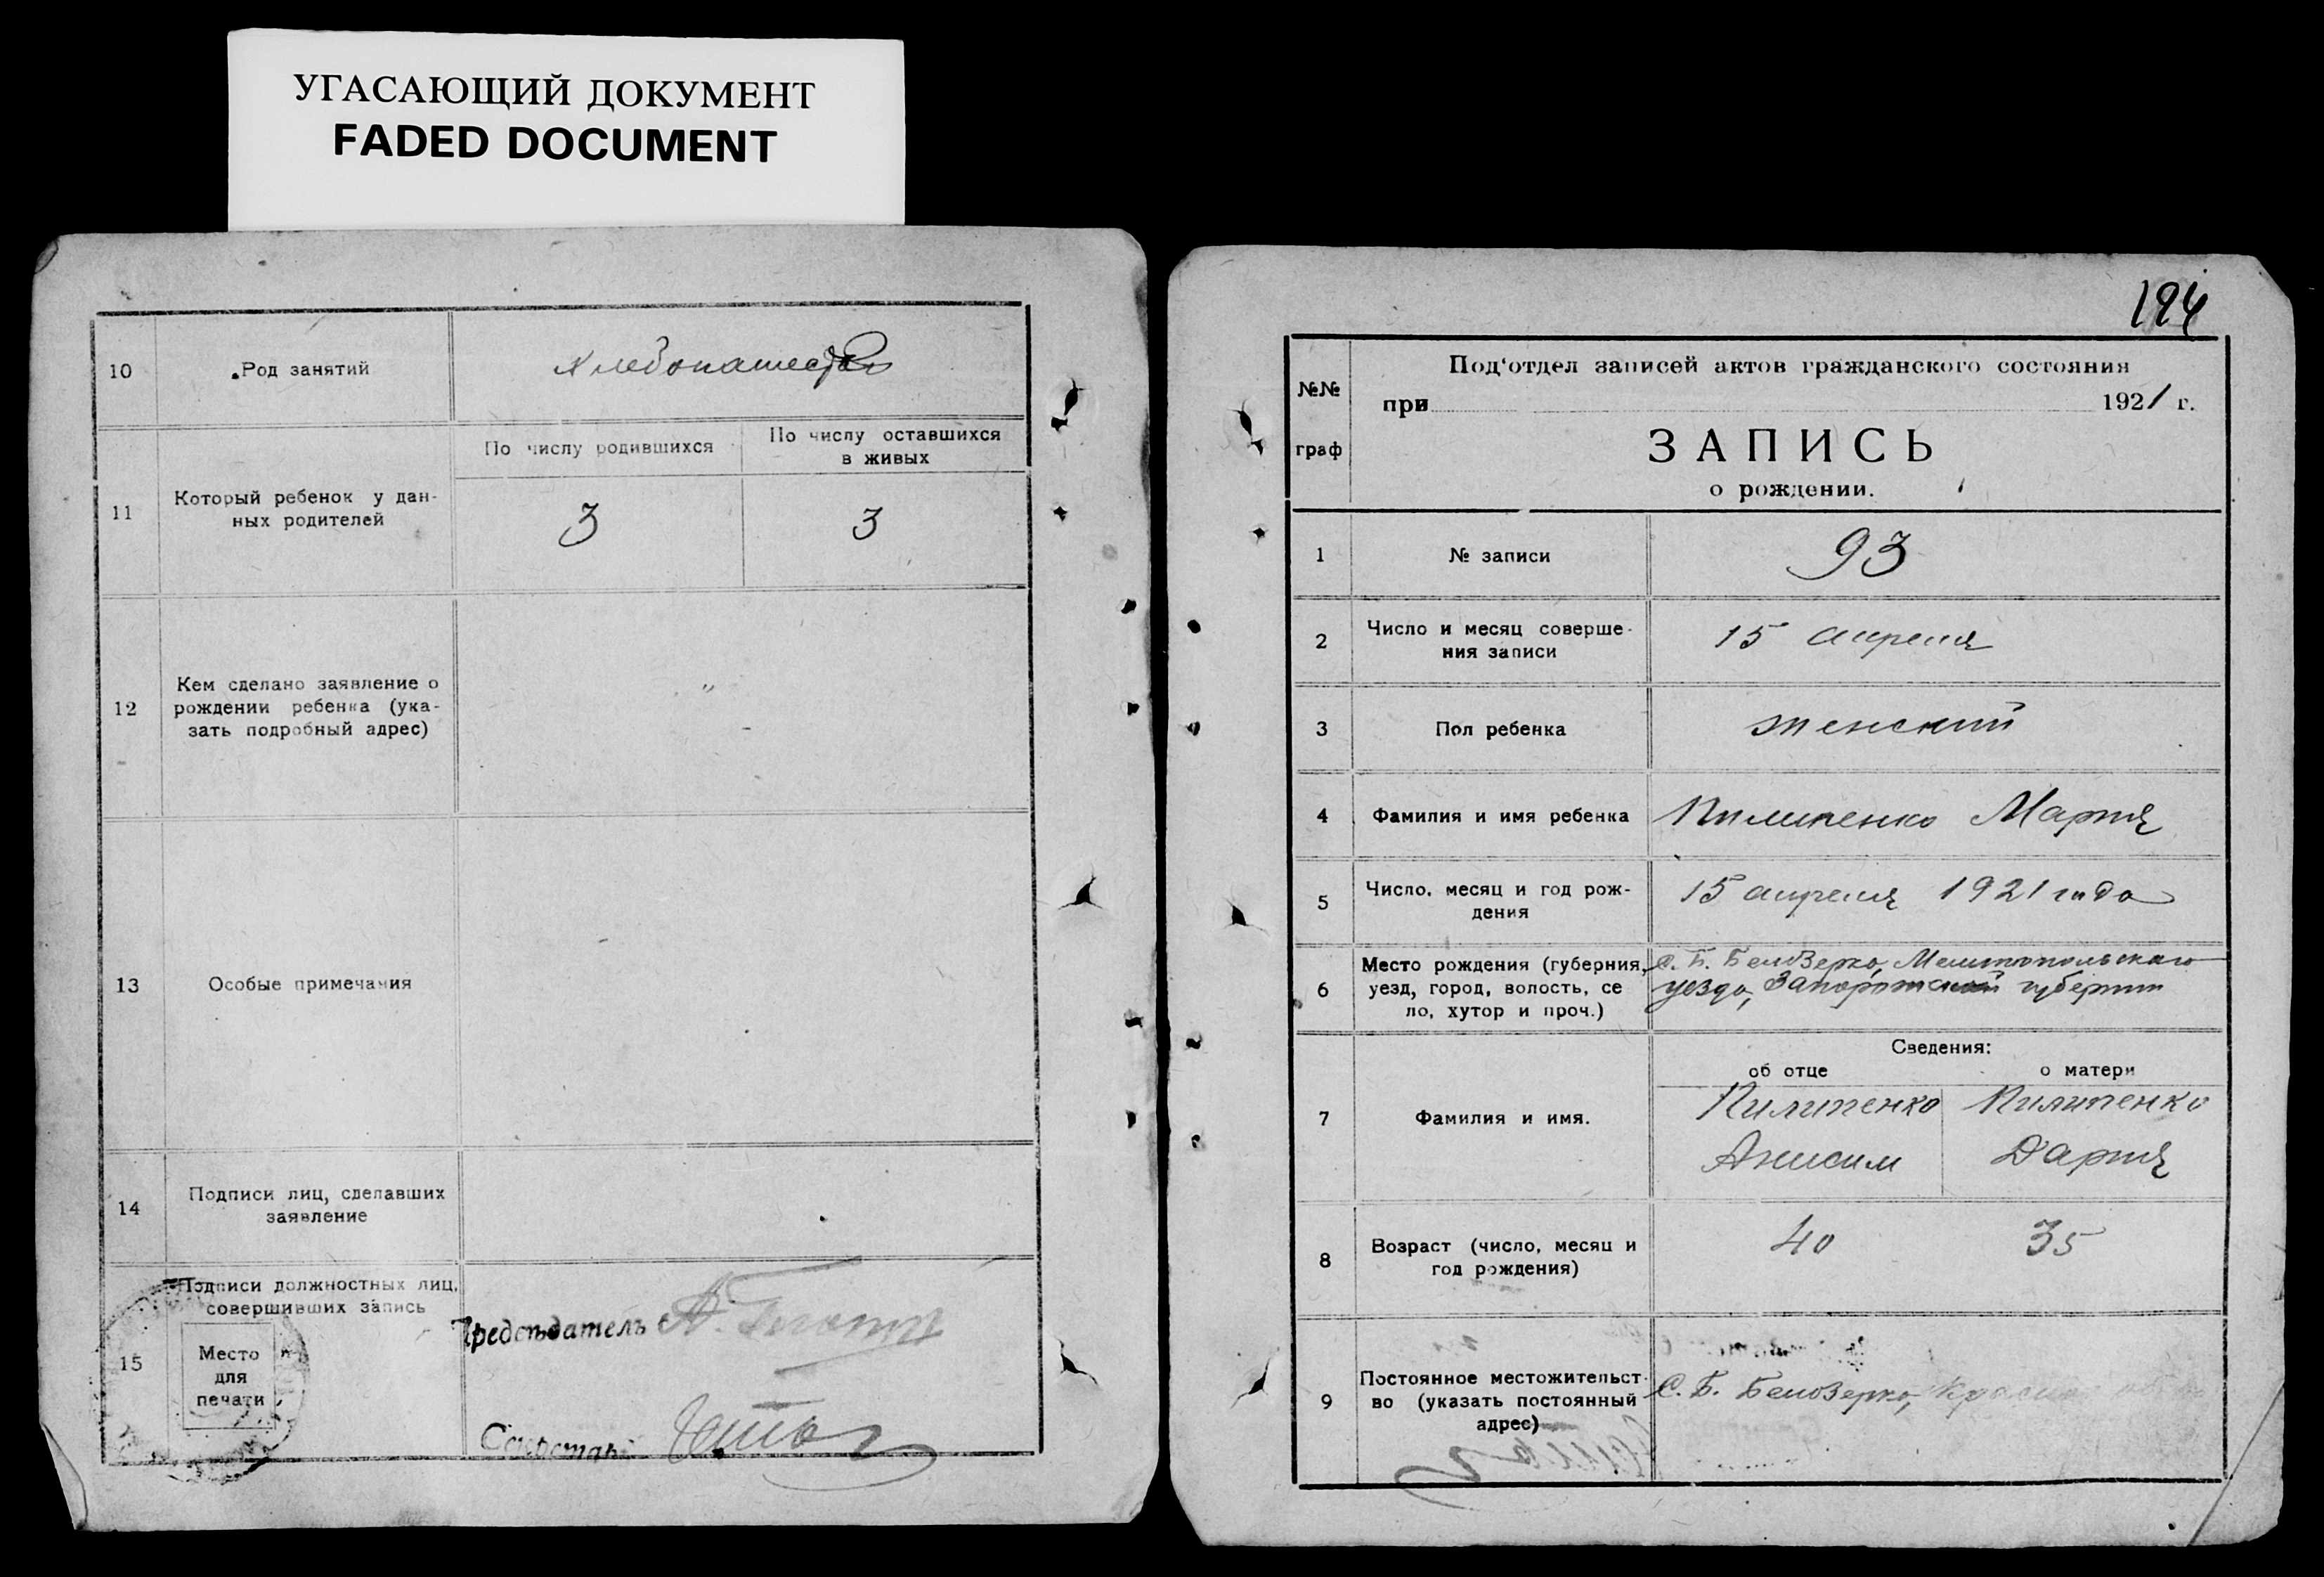 УГАСАЮЩИЙ ДОКУМЕНТ
FADED DOCUMENT
10
Род занятий
хлебопашество
11
Который ребенок у дан-
ных родителей
По числу родившихся
По числу оставшихся
в живых
3
3
12
Кем сделано заявление о
рождении ребенка (ука-
зать подробный адрес)
"
13
Особые примечания
14
Подписи лиц, сделавших
заявление
15
Подписи должностных лиц,
совершивших запись
Место
для
печати
Председатель А.
Секретарь
194
№№
граф
Под'отдел записей актов гражданского состояния
при 1921 г.
ЗАПИСЬ
о рождении.
1
№ записи
93
2
Число и месяц соверше-
ния записи
15 апреля
3
Пол ребенка
женский
4
Фамилия и имя ребенка
Пилипенко Мария
5
Число, месяц и год рож-
дения
15 апреля 1921 года
6
Место рождения (губерния,
уезд, город, волость, се
ло, хутор и проч.)
С. Б. Белозерко, Мелитопольскаго
уезда, Запорожской губернии
Сведения:
об отце
о матери
7
Фамилия и имя.
Пилипенко
Анисим
Пилипенко
Дария
8
Возраст (число, месяц и
год рождения)
40
35
9
Постоянное местожительст-
во (указать постоянный
адрес)
С. Б. Белозерко,